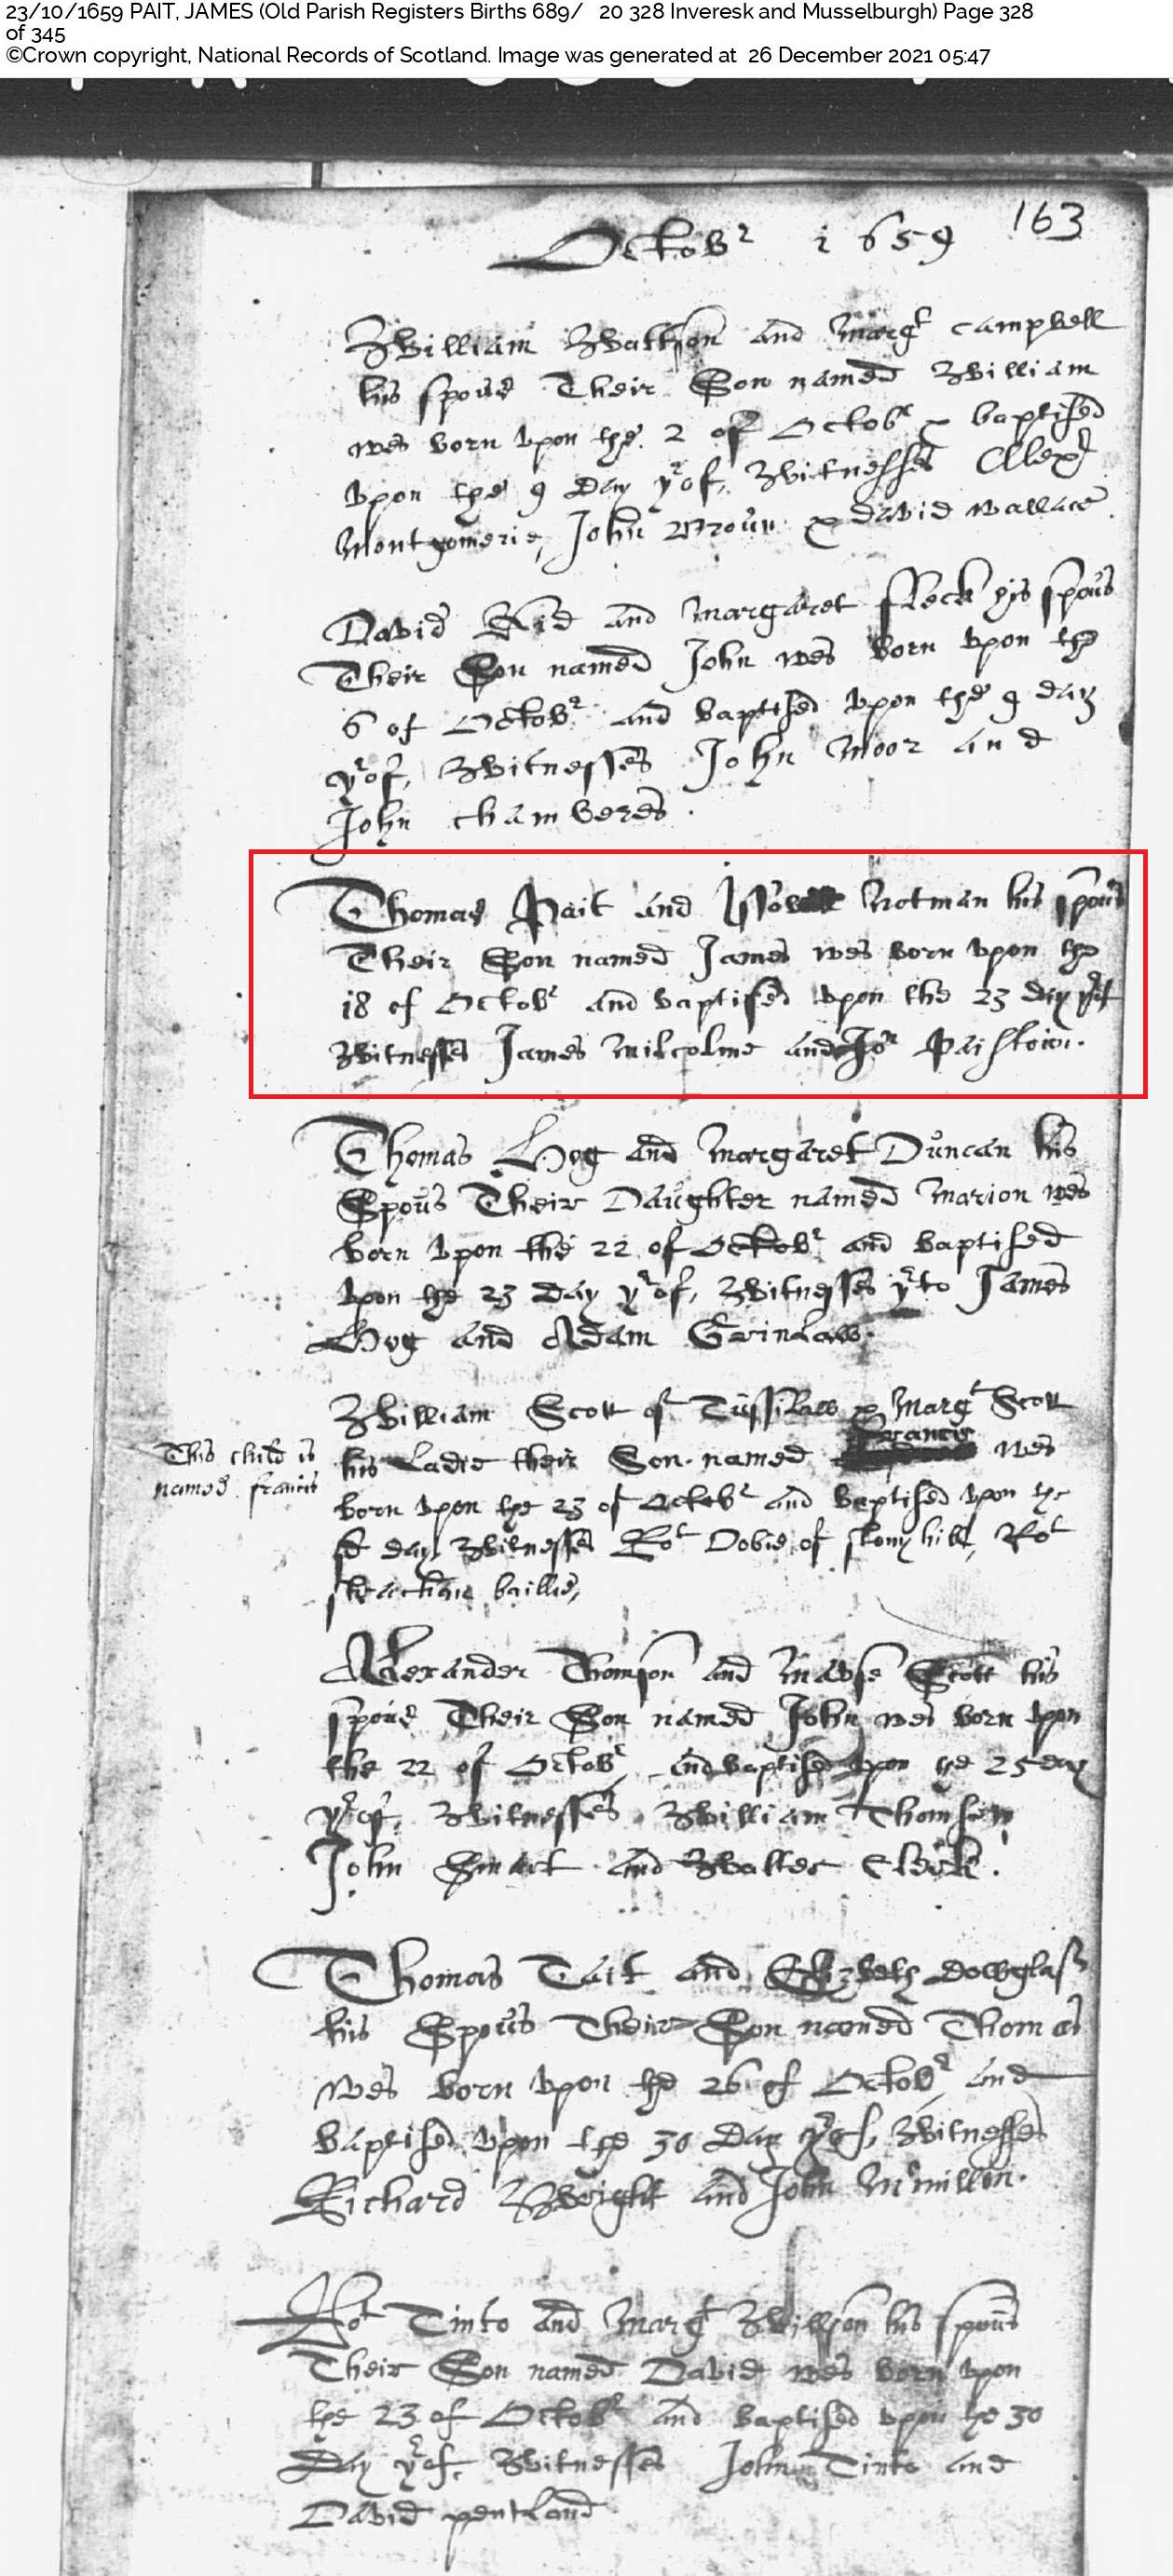 23/10/1659 PAIT, JAMES (Old Parish Registers Births 689/ 20 328 Inveresk and Musselburgh) Page 328
of 345
©Crown copyright, National Records of Scotland. Image was generated at 26 December 2021 05:47
163
Octobr 1659
William Watson and Margt Campbell
his spous Their Son named William
wes born upon the 2 of Octobr & baptised
upon the 9 day yrof, Witnesses Alexr
Montgomerie, John Broun & david wallace
David Reid and Margaret fleck his spous
Their Son named John wes born upon the
6 of Octobr and baptised upon the 9 day
yrof, Witnesses John Moor and
John chamberes.
Thomas Pait and Notman his spous
Their Son named James wes born upon the
18 of Octobr and baptised upon the 23 day yrof
Witnesses James and Jon Paistown.
Thomas Hog and Margaret Duncan his
Spous Their Daughter named Marion wes
born upon the 22 of Octobr and baptised
upon the 23 Day yrof, Witnesses yrto James
Hog and Adam Grinlaw.
William Scott of & Margt Scott
his Ladie their Son named francis wes
This child is
named francis
born upon the 23 of Octobr and baptised upon the
sd day Witnesses Rot Dobie of stonyhill, Rot
baillie,
Alexander Thomson and Mawse Scott his
spous Their Son named John wes born upon
the 22 of Octobr and baptised upon the 25 day
yrof, Witnesses William Thomson
John Smart and Walter Clerk.
Thomas Tait and Elizbeth Dowglass
his Spous Their Son named Thomas
wes born upon the 26 of Octobr and
baptised upon the 30 Day yrof, Witnesses
Richard Wright and John Mcmillan.
Rot Tinto and Margt Willson his spous
Their Son named David wes born upon
the 23 of Octobr and baptised upon the 30
Day yrof, Witnesses John Tinto and
David pentland.